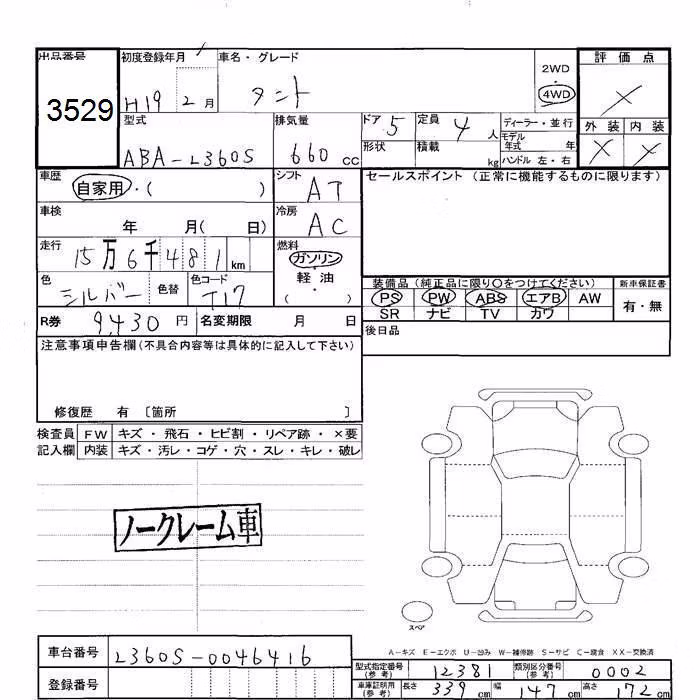 出品番号 初度登録年月 車名・グレード 2WD 評価点
3529 H19 2月 タント 4WD ×
型式 排気量 ドア 5 定員 4人 ディーラー・並行 外装 内装
ABA-L360S 660cc 形状 積載 kg モデル年式 年 × ×
ハンドル 左・右
車歴 自家用・( ) シフト AT セールスポイント (正常に機能するものに限ります)
車検 年 月( 日) 冷房 AC
走行 15万6千481km 燃料 ガソリン
軽油
( )
色 シルバー 色替 色コード T17 装備品 (純正品に限り○をつけてください) 新車保証書
PS PW ABS エアB AW 有・無
SR ナビ TV カワ
R券 9,430円 名変期限 月 日 後日品
注意事項申告欄(不具合内容等は具体的に記入して下さい)
修復歴 有 〔箇所 〕
検査員 FW キズ・飛石・ヒビ割・リペア跡・×要
記入欄 内装 キズ・汚レ・コゲ・穴・スレ・キレ・破レ
ノークレーム車
スペア
A-キズ E-エクボ U-凹み W-補修跡 S-サビ C-腐食 XX-交換済
車台番号 L360S-0046416 型式指定番号(参考) 12381 類別区分番号(参考) 0002
登録番号 車庫証明用(参考) 長さ 339cm 幅 147cm 高さ 172cm